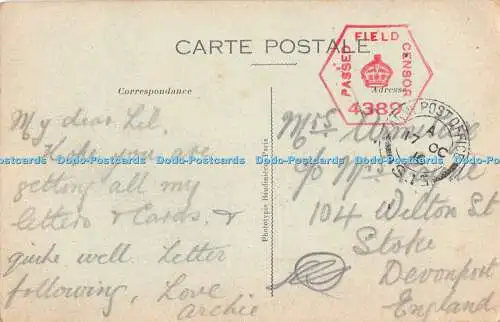 CARTE POSTALE
Correspondance
Adresse
PASSED FIELD CENSOR
4382
POST OFFICE
A
17 OC
My dear Lil,
Hope you are
getting all my
letters & Cards, &
quite well. Letter
following, Love
Archie
Phototypie
Paris
Mrs
c/o Mrs
104 Wilton St
Stoke
Devonport
England
Dodo-Postcards Dodo-Postcards Dodo-Postcards Dodo-Postcards Dodo-Postcards Dodo-Postcards